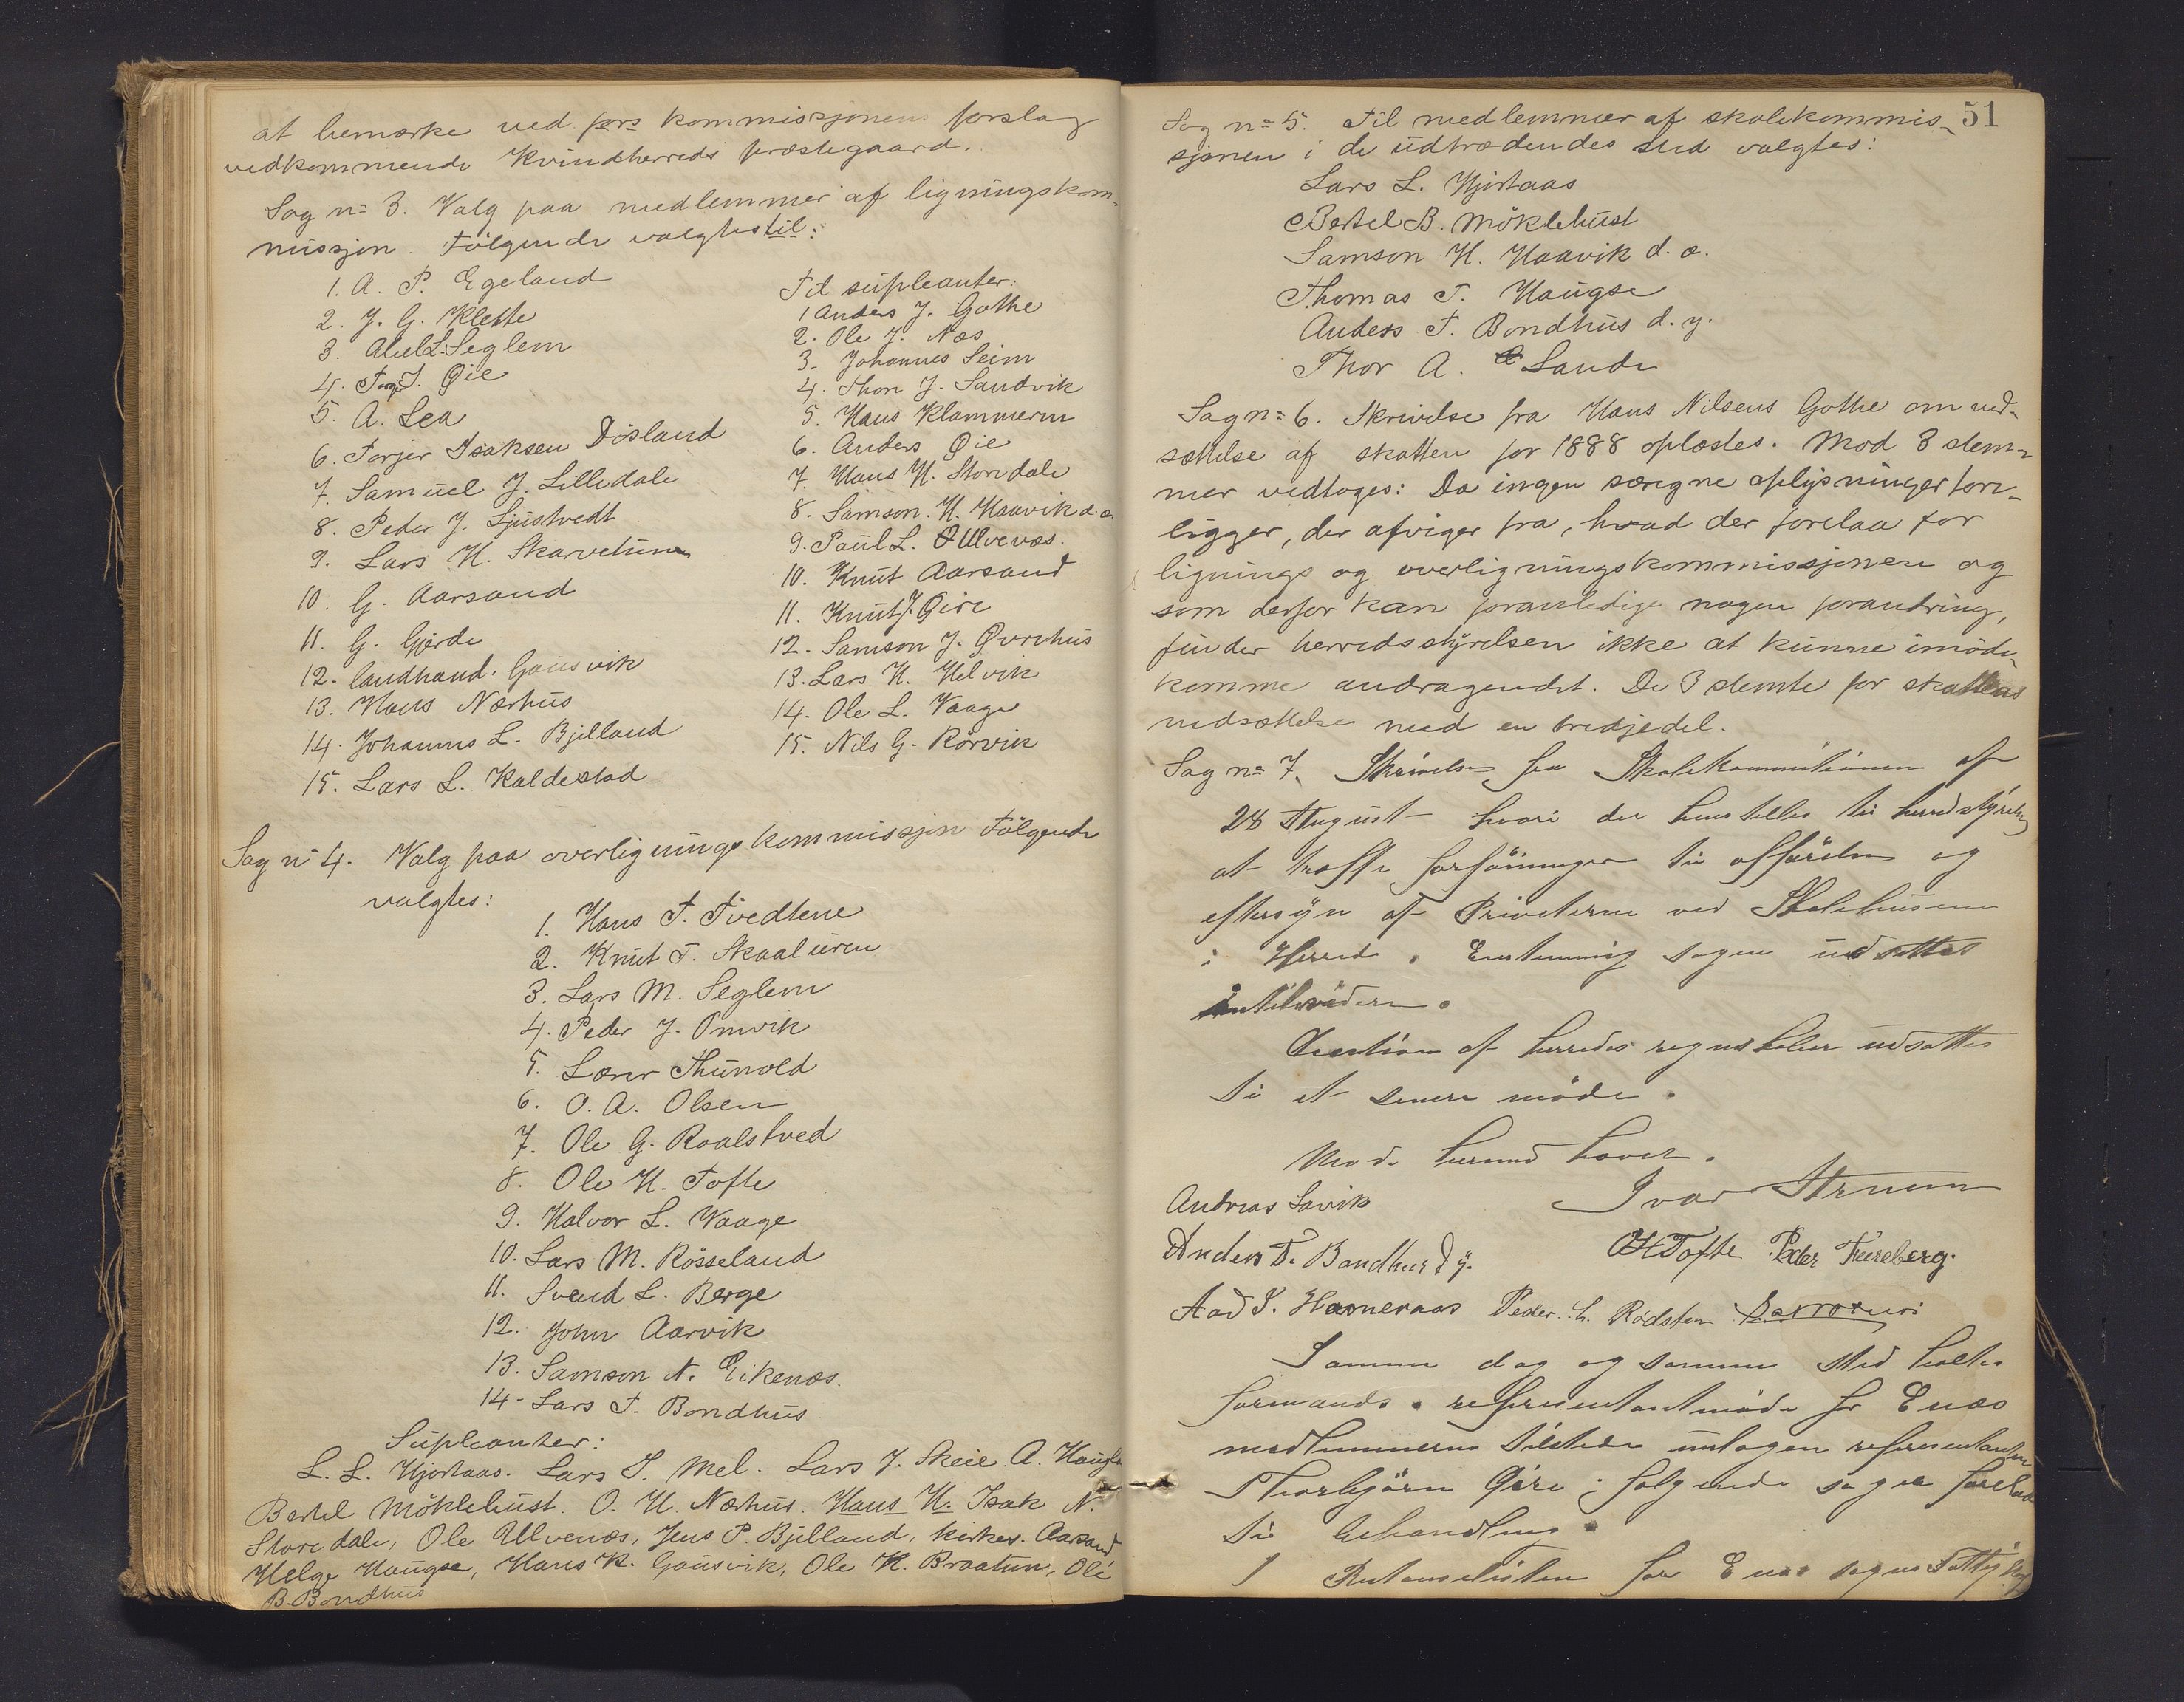 at bemærke ved kommissjonens forslag
vedkommende Kvindherreds præstegaard.
Sag n= 3. Valg paa medlemmer af ligningskom-
missjon. Følgende valgtes til:
1. A. P. Egeland
2. J. G. Klette
3. Abel L. Seglem
4. T. Øie
5. A. Lea
6. Torger Isaksen Døsland
7. Samüel J. Lilledale
8. Peder J. Ljüstvedt
9. Lars H. Skarvetün
10. G. Aarsand
11. G. Gjerde
12. landhand. Gaüsvik
13. Hans Nærhüs
14. Johannes L. Bjelland
15. Lars L. Kaldestad
Til süpleanter:
1 Anders J. Gothe
2. Ole J. Næs
3. Johannes Seim
4. Thor J. Sandvik
5. Hans Klammerm
6. Anders Øie
7. Hans H. Storedale
8. Samson. H. Haavik d. æ.
9. Paül L. Ulvenæs.
10. Knüt Aarsand
11. Knüt J. Øire
12. Samson J. Øvrehüs
13. Lars H. Helvik
14. Ole L. Vaage
15. Nils G. Rørvik
Sag n= 4. Valg paa overligningskommissjon Følgende
valgtes:
1. Hans T. Tvedtene
2. Knüt T. Skaalüren
3. Lars M. Seglem
4. Peder J. Omvik
5. Lærer Thünold
6. O. A. Olsen
7. Ole G. Roalstved
8. Ole H. Tofte
9. Halvor L. Vaage
10. Lars M. Røsseland
11. Svend L. Berge
12. John Aarvik
13. Samson N. Eikenæs.
14- Lars T. Bondhüs.
Süpleanter:
L. L. Hjortaas. Lars S. Mel. Lars J. Skeie. A.
Bertel Möklebüst. O. H. Nærhüs. Hans H. Isak N.
Storedale, Ole Ulvenæs, Jens P. Bjelland, kirkes. Aarsand
Helge Haügse, Hans K. Gaüsvik, Ole K. Braatün, Ole
B. Bondhüs
51
Sag n= 5. Til medlemmer af skolekommis-
sjonen i de üdtrædendes sted valgtes:
Lars L. Hjortaas
Bertel B. Möklebüst
Samson H. Haavik d. æ.
Thomas T. Haügse
Anders T. Bondhüs d. y.
Thor A. Sande
Sag n= 6. Skrivelse fra Hans Nilsens Gothe om ned-
sættelse af skatten for 1888 oplæstes. Mod 3 stem-
mer vedtoges: Da ingen særegne oplysninger fore-
ligger, der afviger fra, hvad der forelaa for
lignings og overligningskommissjonen og
som derfor kan foranledige nogen forandring,
finder herredsstyrelsen ikke at künne imøde-
komme andragendet. De 3 stemte for skattens
nedsættelse med en tredjedel.
Sag n= 7. Skrivelse fra Skolekommitionen af
28 August hvori der henstilles til herredsstyrelsen
at træffe forføininger til opførelse og
eftersyn af Priveterne ved Skolehusene
i Herred. Enstemmig sagen udsattes
intilvidere.
Decition af herredes regnskaber udsattes
til et senere møde.
Møde hermed hævet.
Andreas Løvik
Ivar
Anders T. Bondhus d y.
OHTofte Peder Fureberg.
Aad S. Hameraas Peder. L. Rødsten
Samme dag og samme sted holtes
formands & representantmøde for Enæs
medlemmerne tilstede undtagen representanten
Thorbjørn Øire; følgende sager forelaa
til behandling.
1 Restanselisten for Enæs sogns